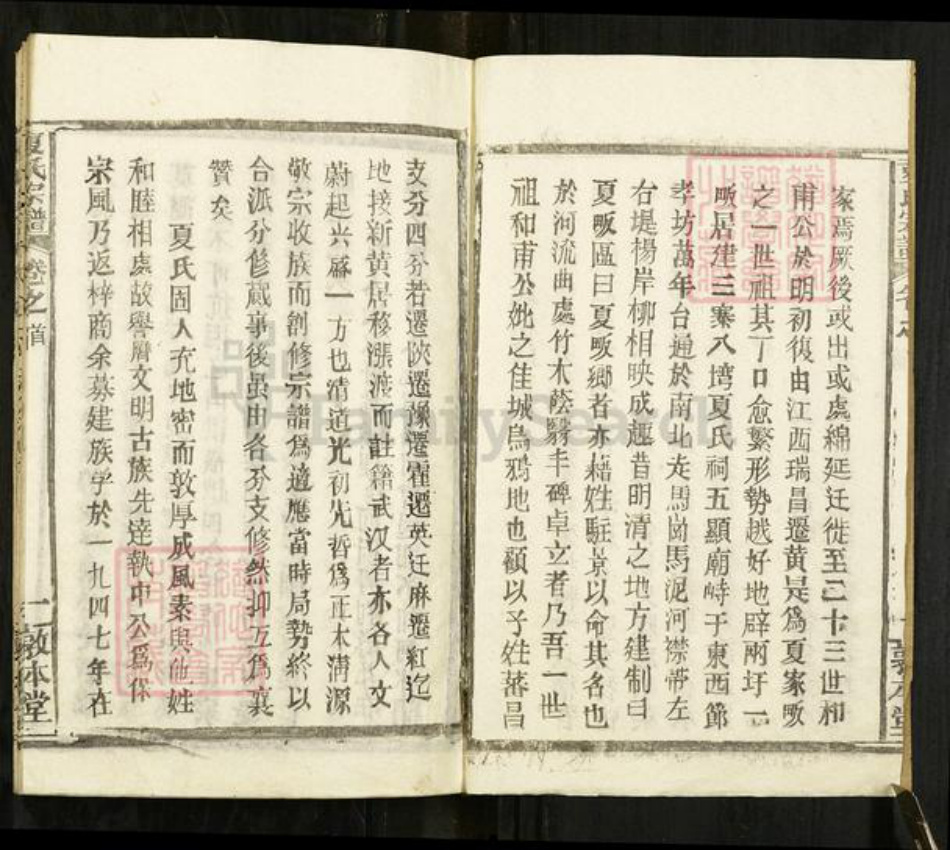 家焉厥後或出或處綿延迁徙至二十三世和
甫公於明初復由江西瑞昌遷黃是爲夏家畈
之一世祖其丁口愈繁形勢越好地辟兩圩一
畈居建三寨八塆夏氏祠五顯廟峙于東西節
孝坊萬年台通於南北走馬崗馬泥河襟带左
右堤楊岸柳相映成趣昔明清之地方建制曰
夏畈區曰夏畈鄉者亦藉姓駐景以命其名也
於河流曲處竹木蔭翳丰碑卓立者乃吾一世
祖和甫公妣之佳城烏鴉地也顧以子姓蕃昌
支分四分若遷陝遷豫遷霍遷英迁麻遷紅迄
地接新黃居移漲渡而註籍武汉者亦各人文
蔚起兴盛一方也清道光初先哲爲正本清源
敬宗收族而創修宗譜爲適應當時局勢終以
合派分修蕆事後虽由各分支修然抑互爲襄
贊矣
夏氏固人充地密而敦厚成風素與他姓
和睦相處故譽曆文明古族先達執中公爲怀
宗風乃返梓商余募建族学於一九四七年在
夏氏宗譜
卷之首
二
敦本堂
FamilySearch